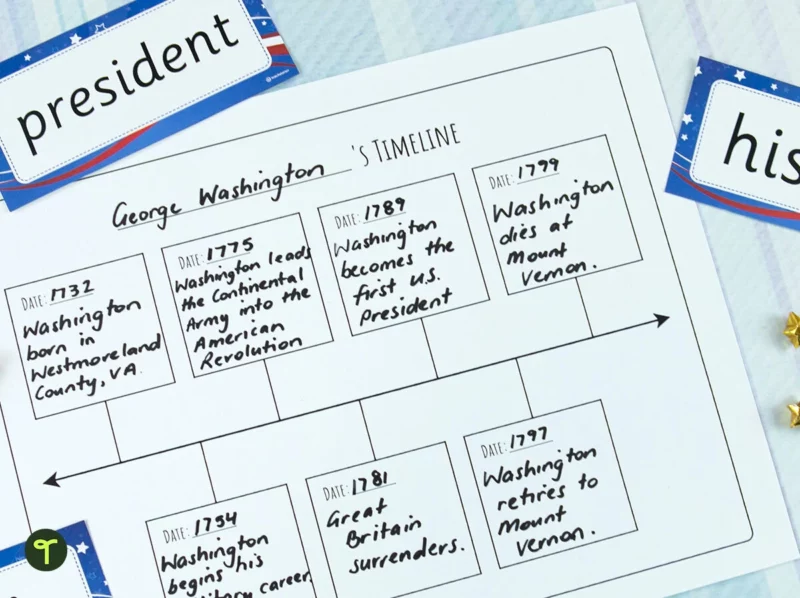 president
his
George Washington 's TIMELINE
DATE: 1732
Washington
born in
Westmoreland
County, VA.
DATE: 1775
Washington leads
the Continental
Army into the
American
Revolution
DATE: 1789
Washington
becomes the
first U.S.
President
DATE: 1799
Washington
dies at
Mount
Vernon.
DATE: 1754
Washington
begins his
career.
DATE: 1781
Great
Britain
surrenders.
DATE: 1797
Washington
retires to
Mount
Vernon.